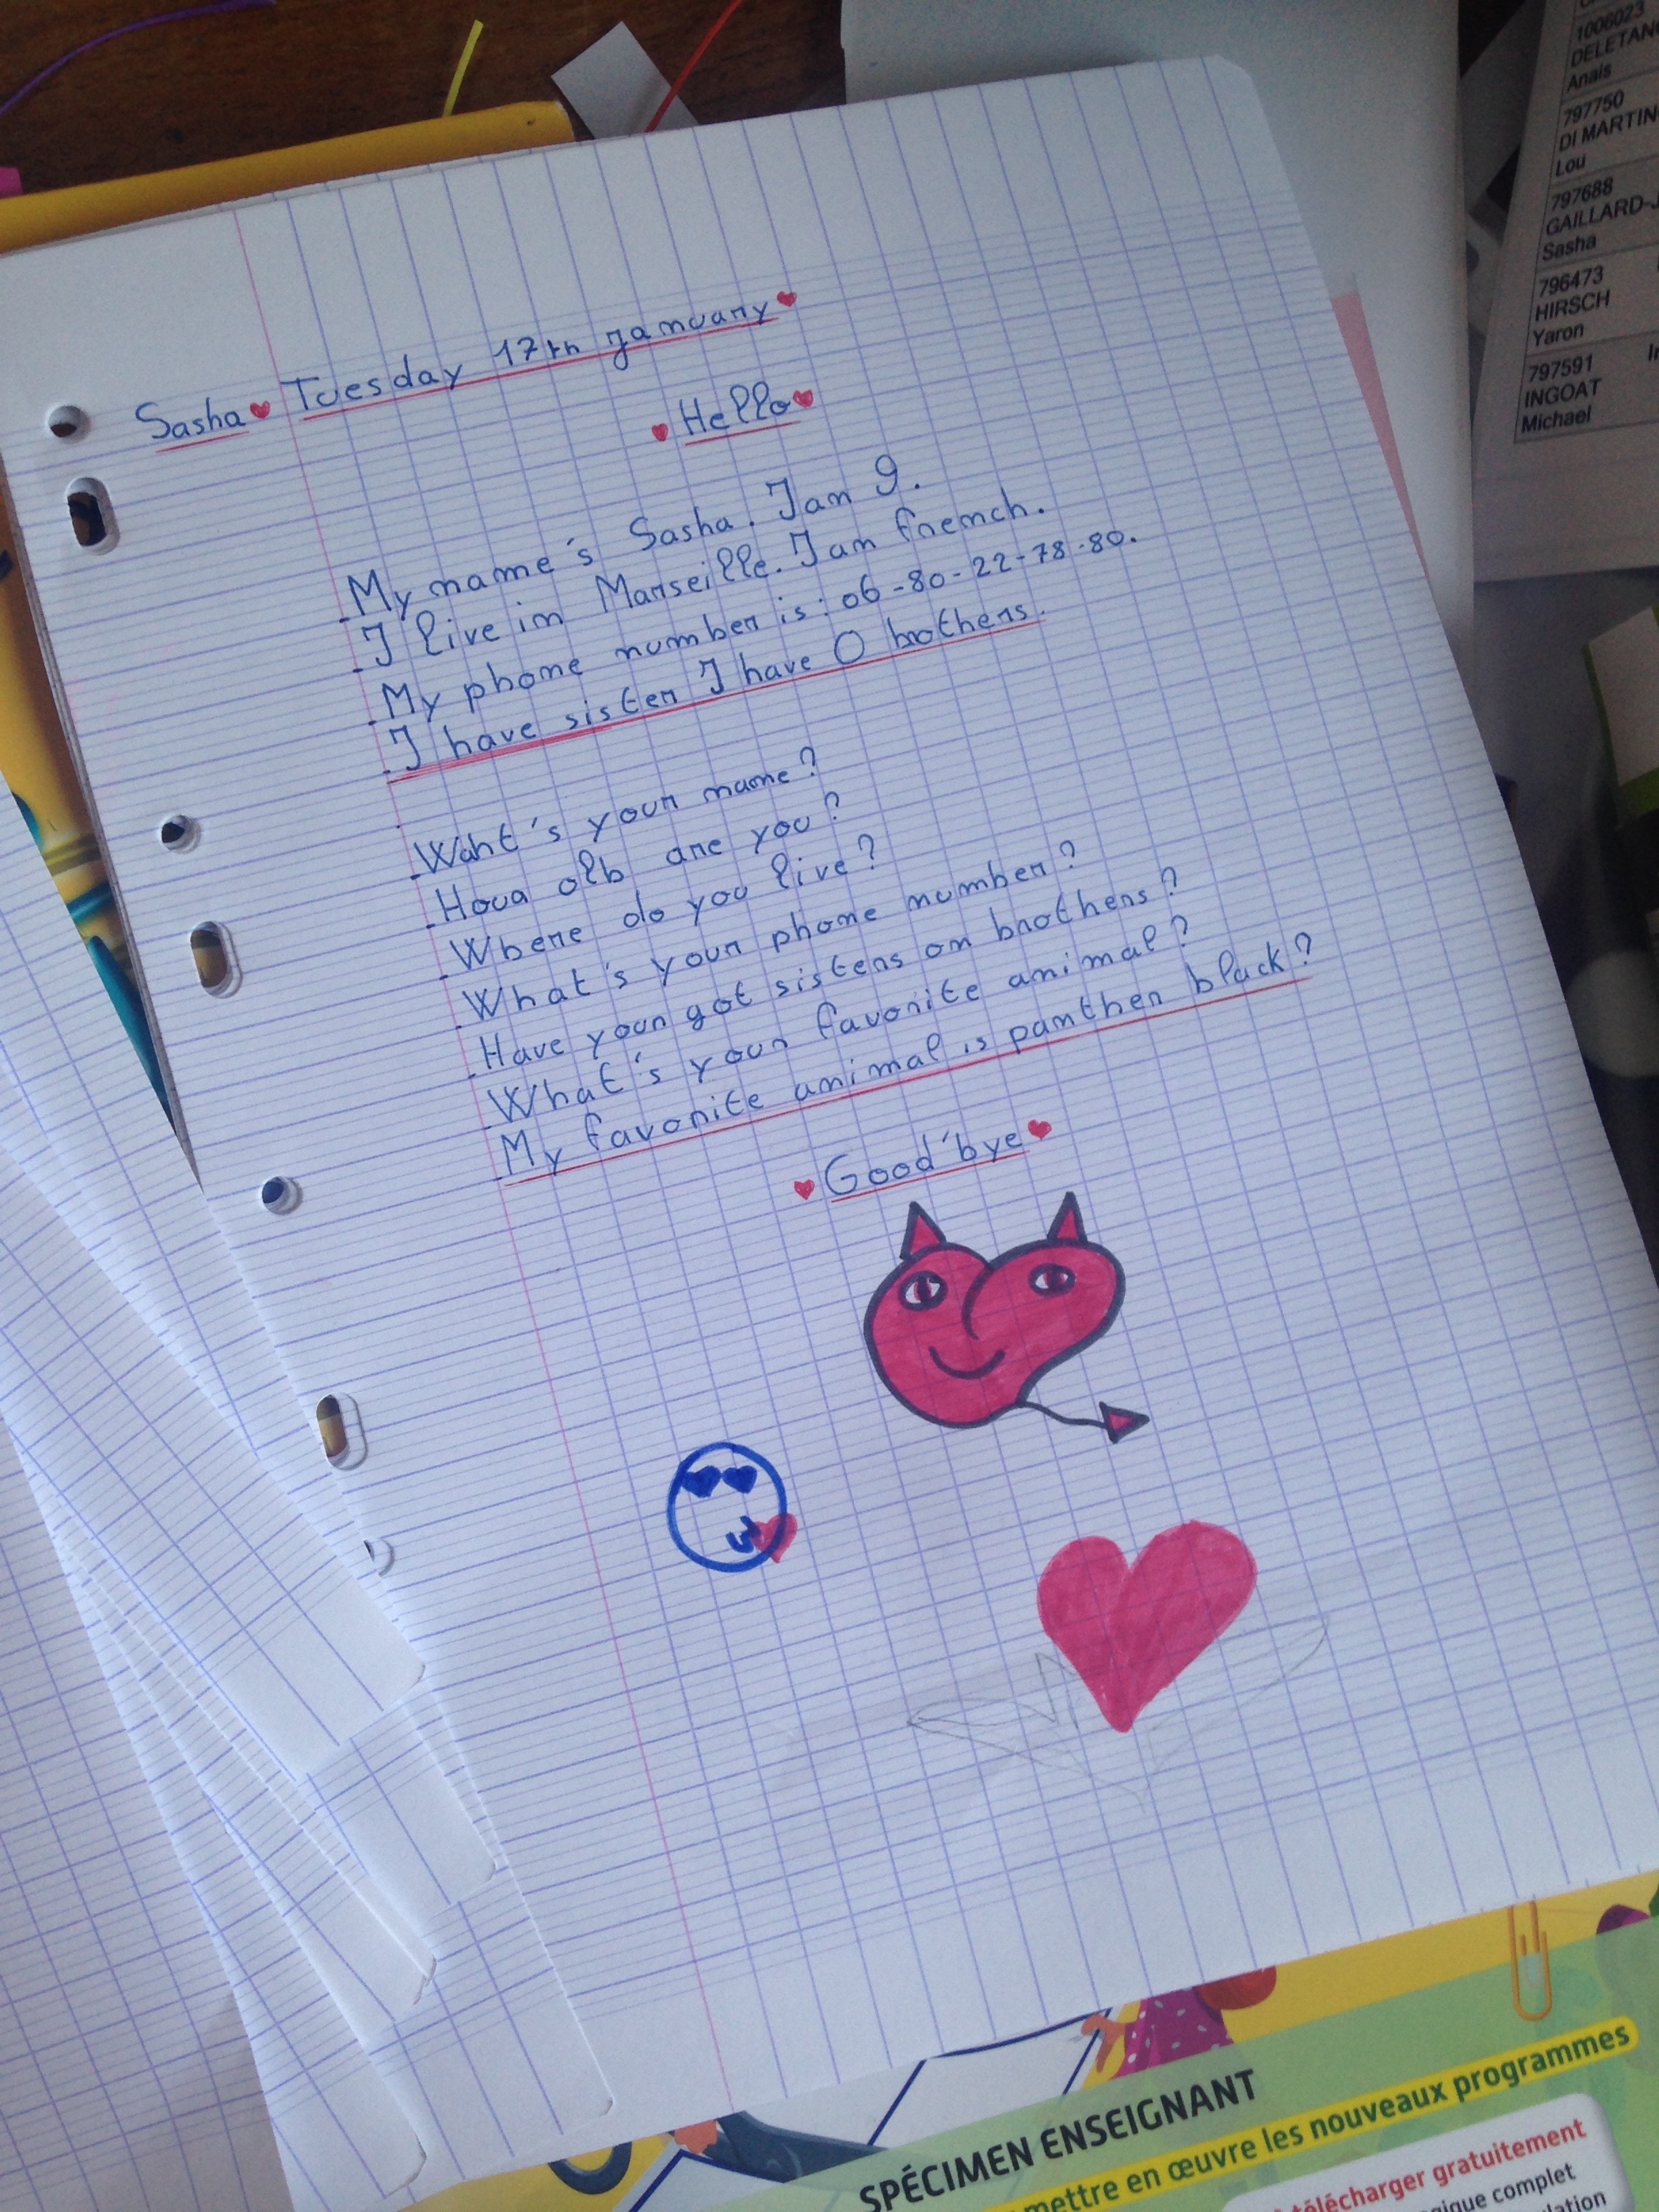 Sasha Tuesday 17th january
Hello
My name's Sasha. I am 9.
I live in Marseille. I am french.
My phone number is : 06-80-22-78-80.
I have sister I have 0 brothers.
Waht's your name ?
Houa olb are you ?
Where do you live ?
What's your phone number ?
Have your got sisters or brothers ?
What's your favorite animal ?
My favorite animal is panther black ?
Good'bye
1006023
DELETANG
Anais
797750
DI MARTIN
Lou
797688
GAILLARD-J
Sasha
796473
HIRSCH
Yaron
797591
INGOAT
Michael
SPÉCIMEN ENSEIGNANT
mettre en œuvre les nouveaux programmes
télécharger gratuitement
gique complet